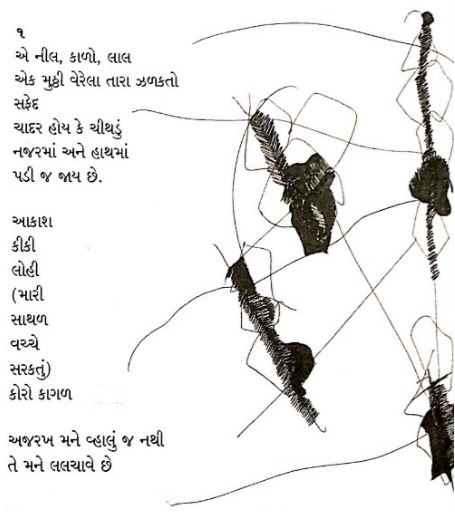 ૧
એ નીલ, કાળો, લાલ
એક મુઠ્ઠી વેરેલા તારા ઝળકતો
સફેદ
ચાદર હોય કે ચીથડું
નજરમાં અને હાથમાં
પડી જ જાય છે.
આકાશ
કીકી
લોહી
(મારી
સાથળ
વચ્ચે
સરકતું)
કોરો કાગળ
અજરખ મને વ્હાલું જ નથી
તે મને લલચાવે છે